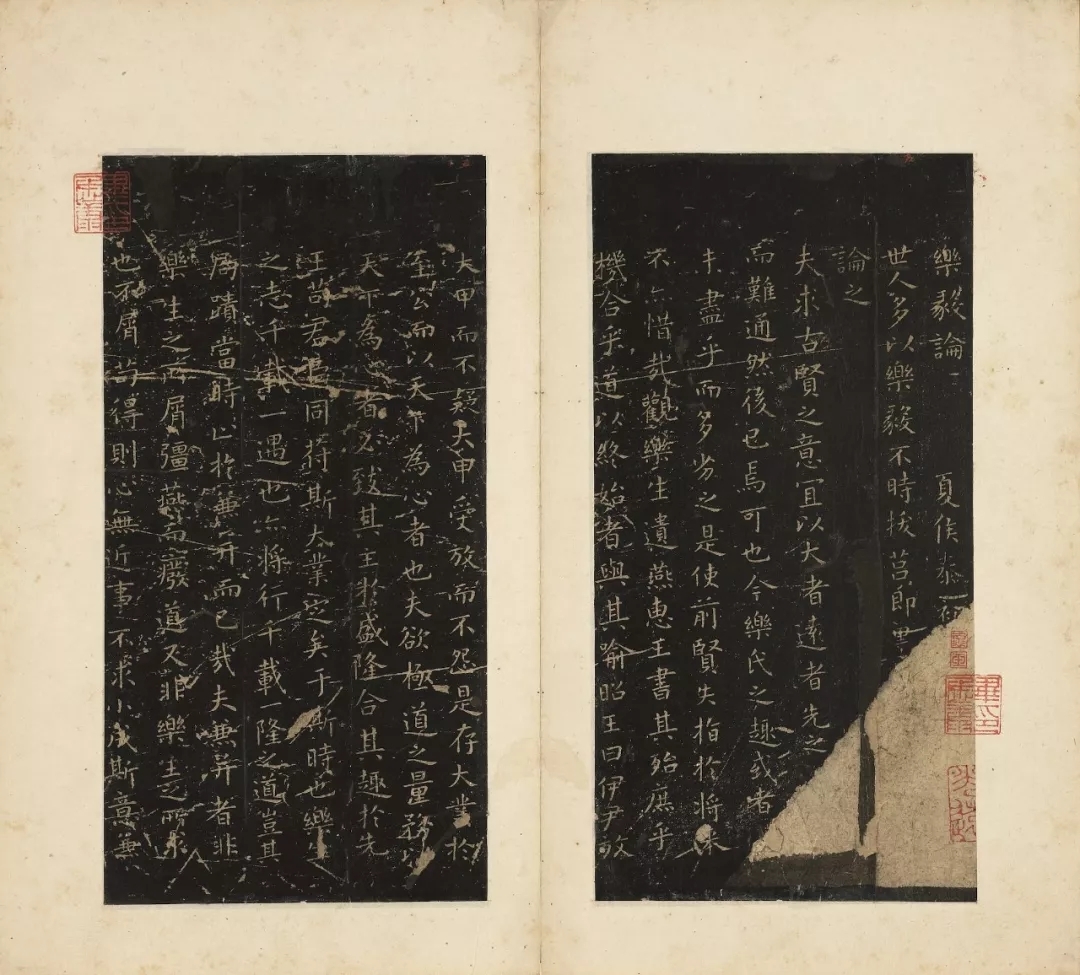 樂毅論 夏侯泰初
世人多以樂毅不時拔莒即墨
論之
夫求古賢之意宜以大者遠者先之
而難通然後已焉可也今樂氏之趣或者
未盡乎而多劣之是使前賢失指於將来
不亦惜哉觀樂生遺燕惠王書其殆庶乎
機合乎道以終始者與其喻昭王曰伊尹放
大甲而不疑大甲受放而不怨是存大業於
至公而以天下為心者也夫欲極道之量務以
天下為心者必致其主於盛隆合其趣於先
王苟君臣同苻斯大業定矣于斯時也樂生
之志千載一遇也亦將行千載一隆之道豈其
局蹟當時止於兼并而已哉夫兼并者非
樂生之所屑彊燕而廢道又非樂生之所求
也不屑苟得則心無近事不求小成斯意兼